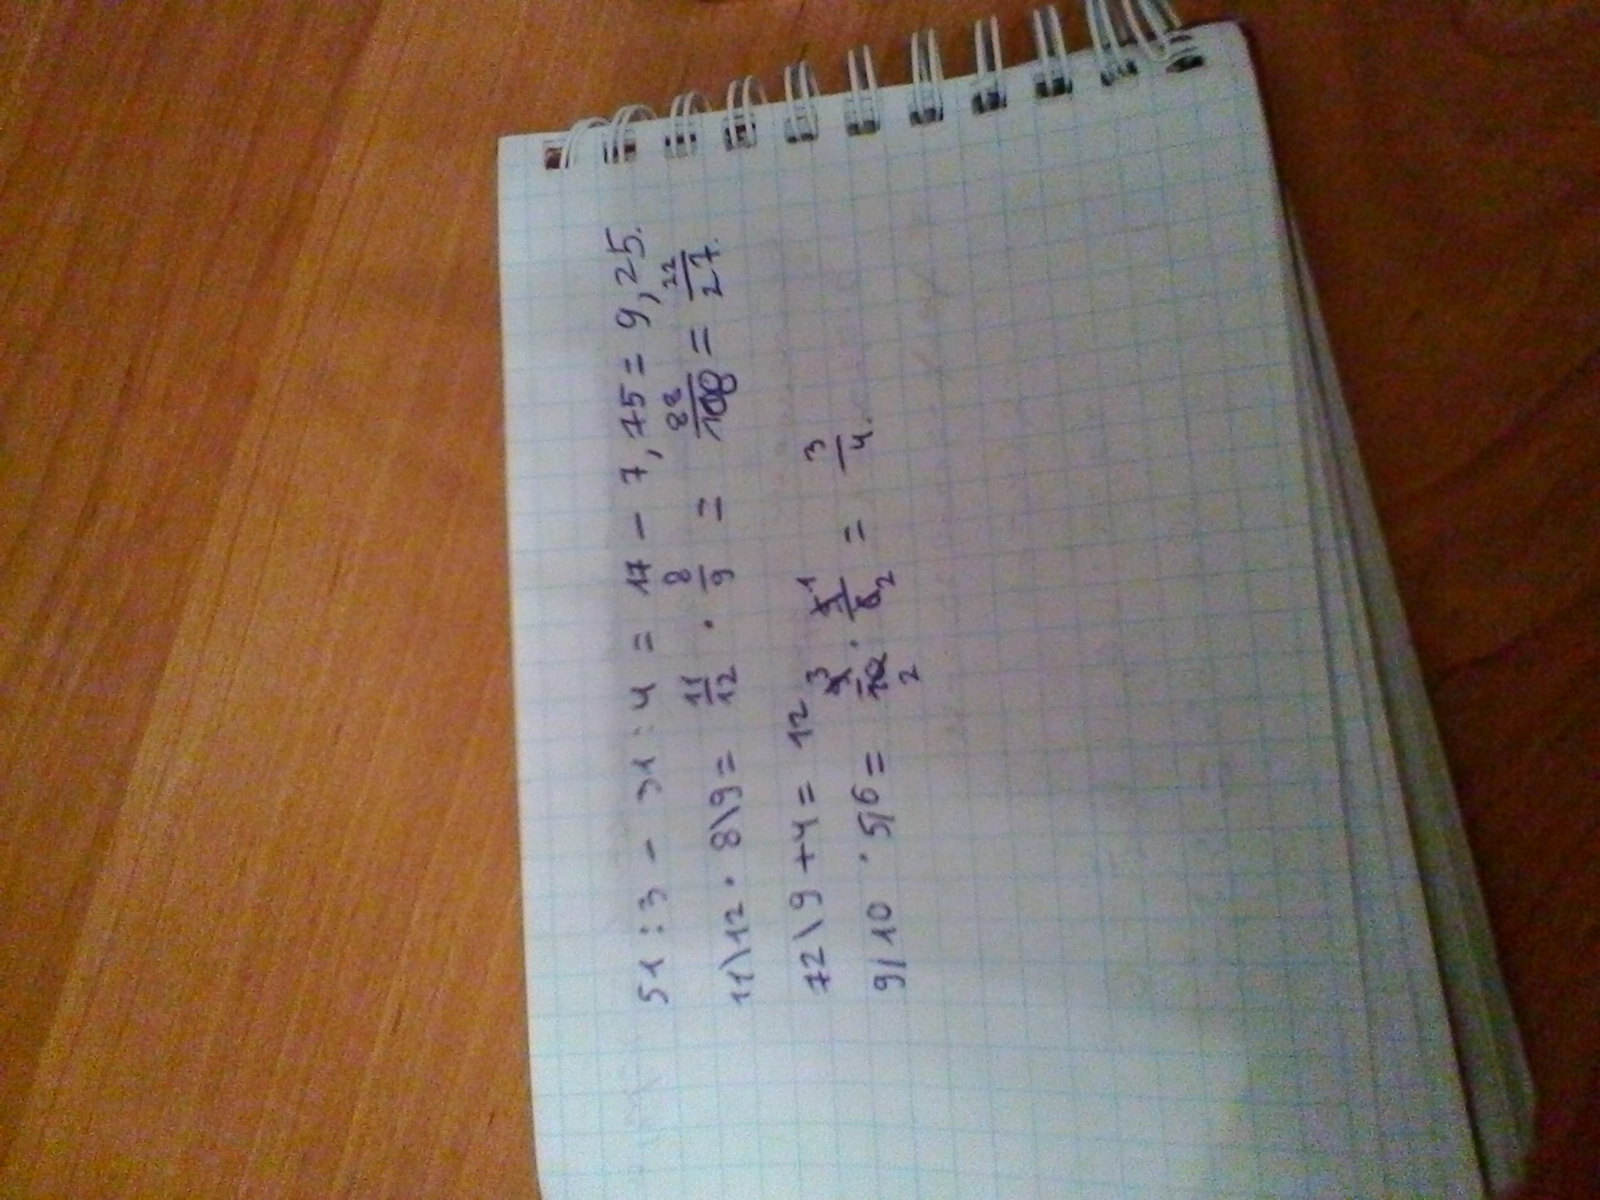 51 : 3 - 31 : 4 = 17 - 7,75 = 9,25.
11\12 · 8\9 = 11/12 · 8/9 = 88/108 = 22/27.
72\9 + 4 = 12
9/10 · 5/6 = 9 3/10 2 · 5 1/6 2 = 3/4.